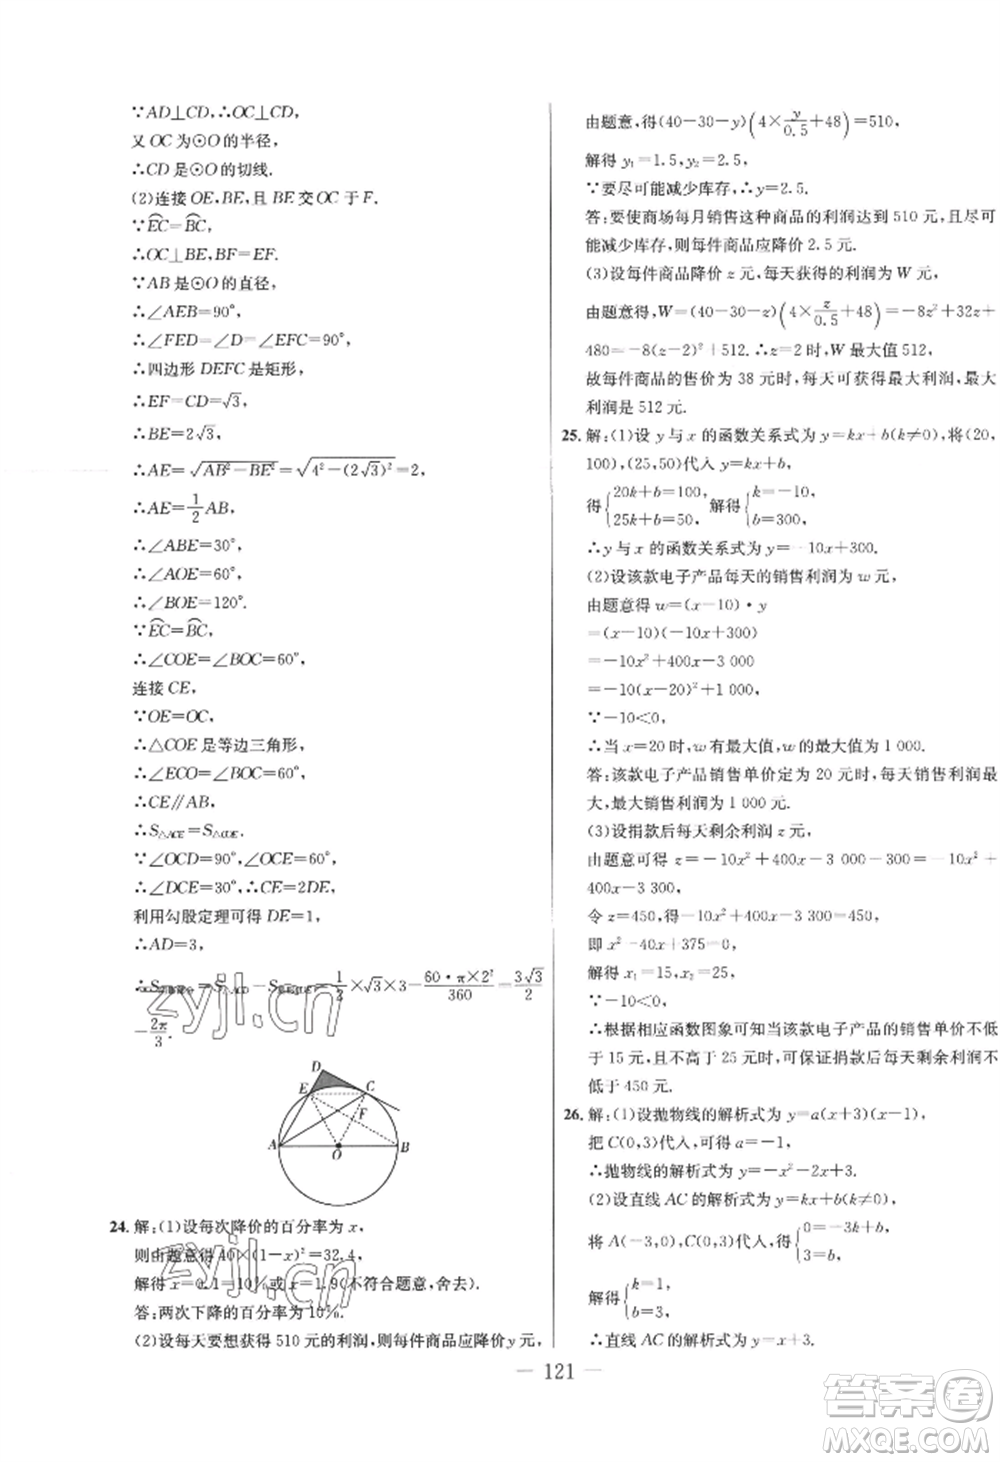 ∵AD⊥CD,∴OC⊥CD,
又 OC 为⊙O 的半径,
∴CD 是⊙O 的切线.
(2)连接 OE,BE,且 BE 交 OC 于 F.
∵EC=BC
∴OC⊥BE,BF=EF.
∵AB 是⊙O 的直径,
∴∠AEB=90°,
∴∠FED=∠D=∠EFC=90°,
∴四边形 DEFC 是矩形,
∴EF=CD=√3,
∴BE=2√3,
∴AE=√(AB²-BE²)=√(4²-(2√3)²)=2,
∴AE=1/2 AB,
∴∠ABE=30°,
∴∠AOE=60°,
∴∠BOE=120°.
∵EC=BC,
∴∠COE=∠BOC=60°,
连接 CE,
∵OE=OC,
∴△COE 是等边三角形,
∴∠ECO=∠BOC=60°,
∴CE∥AB,
∴S△ACE=S△COE.
∵∠OCD=90°,∠OCE=60°,
∴∠DCE=30°,∴CE=2DE,
利用勾股定理可得 DE=1,
∴AD=3,
=1/2×√3×3-60·π×2²/360=3√3/2
-2π/3.
D
E C
F
A O B
24. 解:(1)设每次降价的百分率为 x,
则由题意得 40×(1-x)²=32.4,
解得 x=0.1=10%或 x=1.9(不符合题意,舍去).
答:两次下降的百分率为 10%.
(2)设每天要想获得 510 元的利润,则每件商品应降价 y 元,
由题意,得(40-30-y)(4×y/0.5+48)=510,
解得 y₁=1.5,y₂=2.5,
∵要尽可能减少库存,∴y=2.5.
答:要使商场每月销售这种商品的利润达到 510 元,且尽可
能减少库存,则每件商品应降价 2.5 元.
(3)设每件商品降价 z 元,每天获得的利润为 W 元,
由题意得,W=(40-30-z)(4×z/0.5+48)=-8z²+32z+
480=-8(z-2)²+512.∴z=2时,W 最大值 512,
故每件商品的售价为 38 元时,每天可获得最大利润,最大
利润是 512 元.
25. 解:(1)设 y 与 x 的函数关系式为 y=kx+b(k≠0),将(20,
100),(25,50)代入 y=kx+b,
得{20k+b=100, 25k+b=50, 解得{k=-10, b=300,
∴y 与 x 的函数关系式为 y=-10x+300.
(2)设该款电子产品每天的销售利润为 w 元,
由题意得 w=(x-10)·y
=(x-10)(-10x+300)
=-10x²+400x-3 000
=-10(x-20)²+1 000,
∵-10<0,
∴当 x=20 时,w 有最大值,w 的最大值为 1 000.
答:该款电子产品销售单价定为 20 元时,每天销售利润最
大,最大销售利润为 1 000 元.
(3)设捐款后每天剩余利润 z 元,
由题意可得 z=-10x²+400x-3 000-300=-10x²+
400x-3 300,
令 z=450,-10x²+400x-3 300=450,
即 x²-40x+375=0,
解得 x₁=15,x₂=25,
∵-10<0,
∴根据相应函数图象可知当该款电子产品的销售单价不低
于 15 元,且不高于 25 元时,可保证捐款后每天剩余利润不
低于 450 元.
26. 解:(1)设抛物线的解析式为 y=a(x+3)(x-1),
把 C(0,3)代入,可得 a=-1,
∴抛物线的解析式为 y=-x²-2x+3.
(2)设直线 AC 的解析式为 y=kx+b(k≠0),
将 A(-3,0),C(0,3)代入,得{0=-3k+b, 3=b,
解得{k=1, b=3,
∴直线 AC 的解析式为 y=x+3.
— 121 —
zyjl.cn
zyjl.cn
答案圈
MXQE.COM